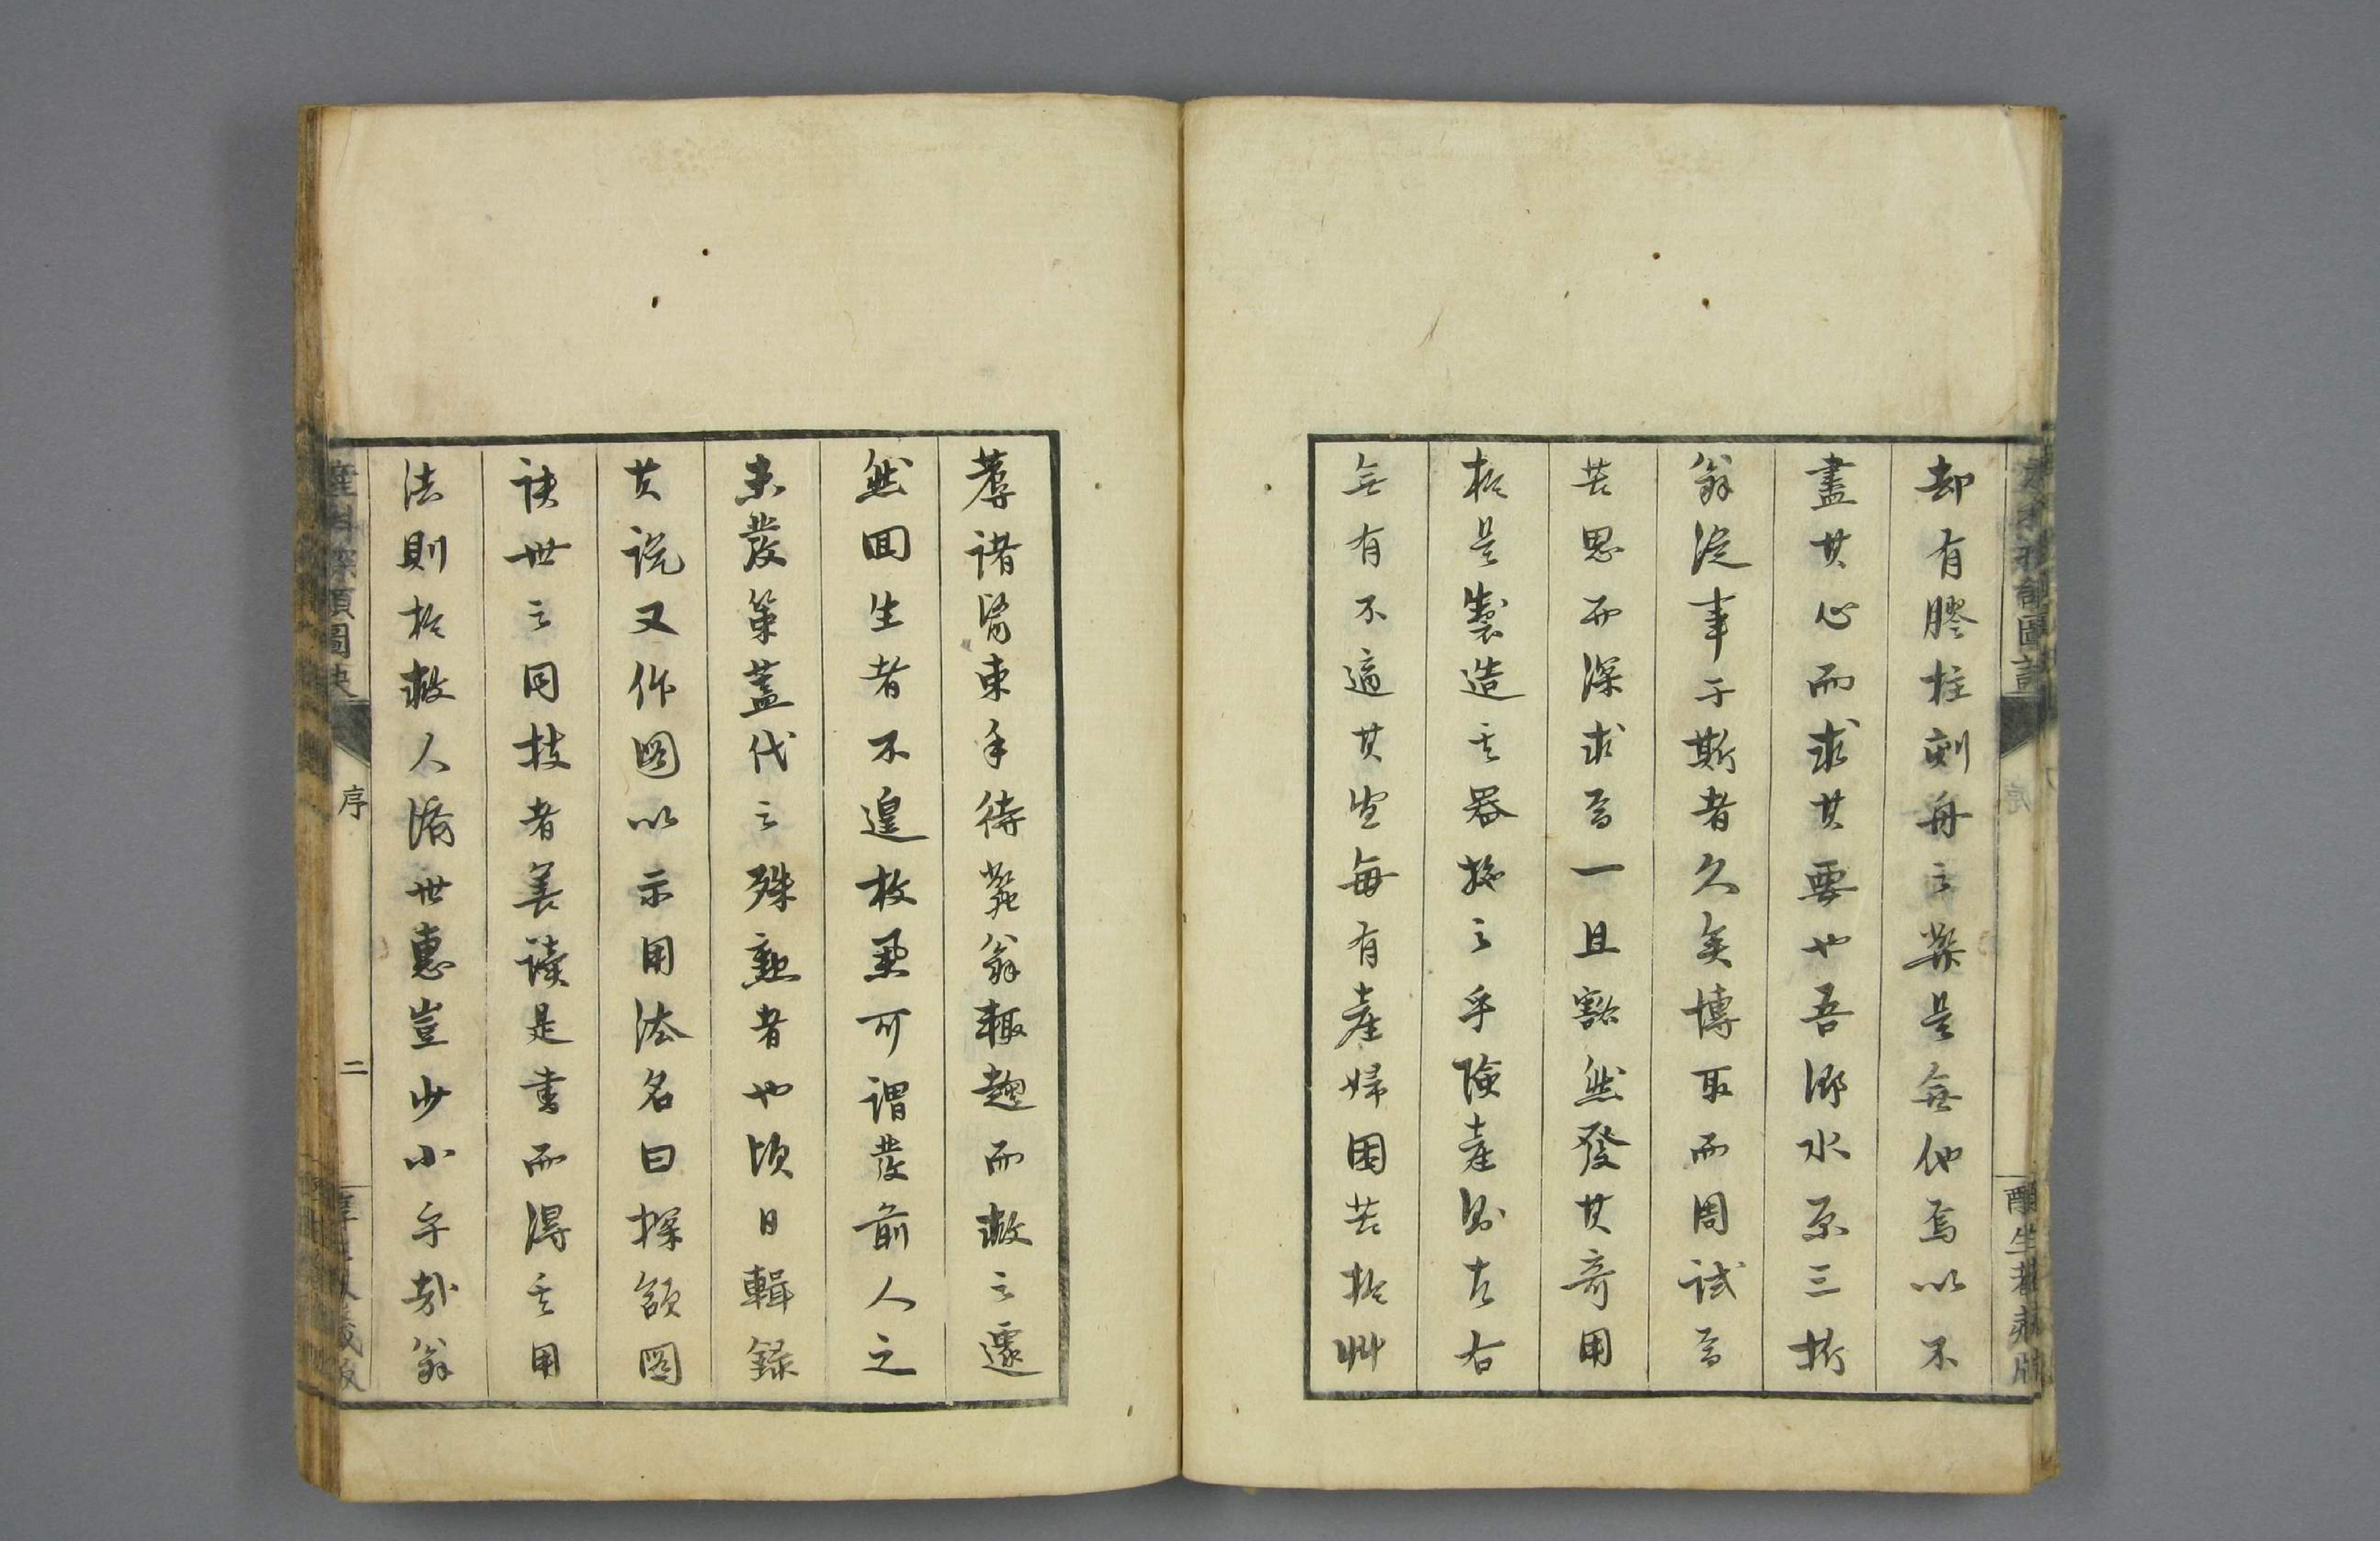 却有膠柱刻舟之弊是無他焉以不
盡其心而求其要也吾鄉水原三折
翁從事于斯者久矣博取而周試焉
苦思而深求焉一旦豁然發其奇用
於是製造其器施之乎險產則左右
無有不適其宜每有產婦困苦於艸
蓐諸醫束手待斃翁輒趣而救之遽
然回生者不遑枚舉可謂發前人之
未發策蓋代之殊勳者也頃日輯錄
其說又作圖以示用法名曰探頷圖
訣世之同技者善讀是書而得其用
法則於救人濟世惠豈少小乎哉翁
產科探頷圖訣
序
二